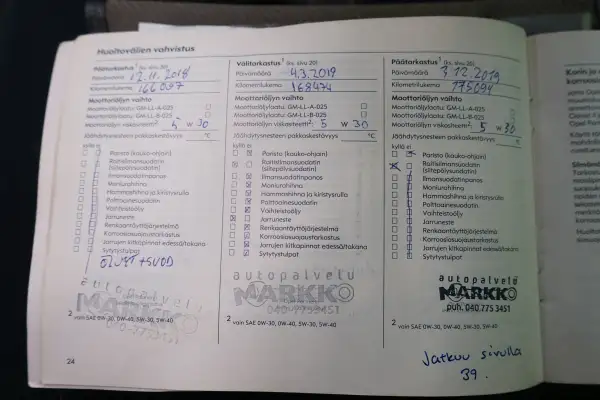 Huoltovälien vahvistus
Päätarkastus¹ (ks. sivu 20)
Päivämäärä 12.11.2018
Kilometrilukema 166097
Moottoriöljyn vaihto
Moottoriöljylaatu: GM-LL-A-025
Moottoriöljylaatu: GM-LL-B-025
Moottoriöljyn viskositeetti²: 5 W 30
Jäähdytysnesteen pakkaskestävyys °C
kyllä ei
Paristo (kauko-ohjain)
Raitisilmansuodatin
(siitepölysuodatin)
Ilmansuodatinpanos
Moniurahihna
Hammashihna ja kiristysrulla
Polttoainesuodatin
Vaihteistoöljy
Jarruneste
Renkaantäyttöjärjestelmä
Korroosiosuojaustarkastus
Jarrujen kitkapinnat edessä/takana
Sytytystulpat
ÖLJYT + SUOD
autopalvelu
MARKKO
040-7753451
² vain SAE 0W-30, 0W-40, 5W-30, 5W-40
24
Välitarkastus¹ (ks. sivu 20)
Päivämäärä 4.3.2019
Kilometrilukema 168474
Moottoriöljyn vaihto
Moottoriöljylaatu: GM-LL-A-025
Moottoriöljylaatu: GM-LL-B-025
Moottoriöljyn viskositeetti²: 5 W 30
Jäähdytysnesteen pakkaskestävyys °C
kyllä ei
Paristo (kauko-ohjain)
Raitisilmansuodatin
(siitepölysuodatin)
Ilmansuodatinpanos
Moniurahihna
Hammashihna ja kiristysrulla
Polttoainesuodatin
Vaihteistoöljy
Jarruneste
Renkaantäyttöjärjestelmä
Korroosiosuojaustarkastus
Jarrujen kitkapinnat edessä/takana
Sytytystulpat
autopalvelu
MARKKO
040-7753451
² vain SAE 0W-30, 0W-40, 5W-30, 5W-40
Päätarkastus¹ (ks. sivu 20)
Päivämäärä 9.12.2019
Kilometrilukema 175094
Moottoriöljyn vaihto
Moottoriöljylaatu: GM-LL-A-025
Moottoriöljylaatu: GM-LL-B-025
Moottoriöljyn viskositeetti²: 5 W 30
Jäähdytysnesteen pakkaskestävyys °C
kyllä ei
Paristo (kauko-ohjain)
Raitisilmansuodatin
(siitepölysuodatin)
Ilmansuodatinpanos
Moniurahihna
Hammashihna ja kiristysrulla
Polttoainesuodatin
Vaihteistoöljy
Jarruneste
Renkaantäyttöjärjestelmä
Korroosiosuojaustarkastus
Jarrujen kitkapinnat edessä/takana
Sytytystulpat
autopalvelu
MARKKO
puh. 040 775 3451
² vain SAE 0W-30, 0W-40, 5W-30, 5W-40
Jatkuu sivulla
39.